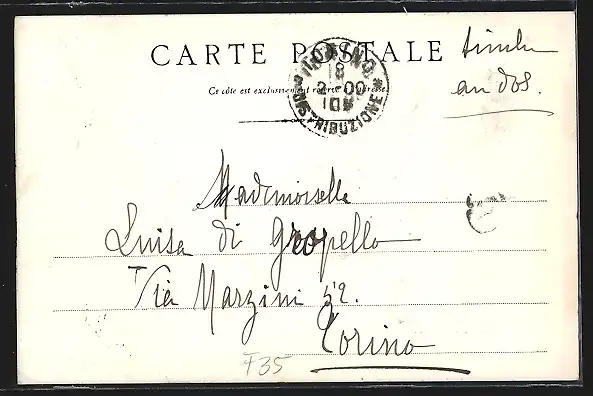 CARTE POSTALE
timbre
au dos.
Ce côté est exclusivement réservé à l'adresse
TORINO
18
2-00
10M
* DISTRIBUZIONE *
Mademoiselle
Luisa di Gropello
Via Marzini 52.
Torino
F35